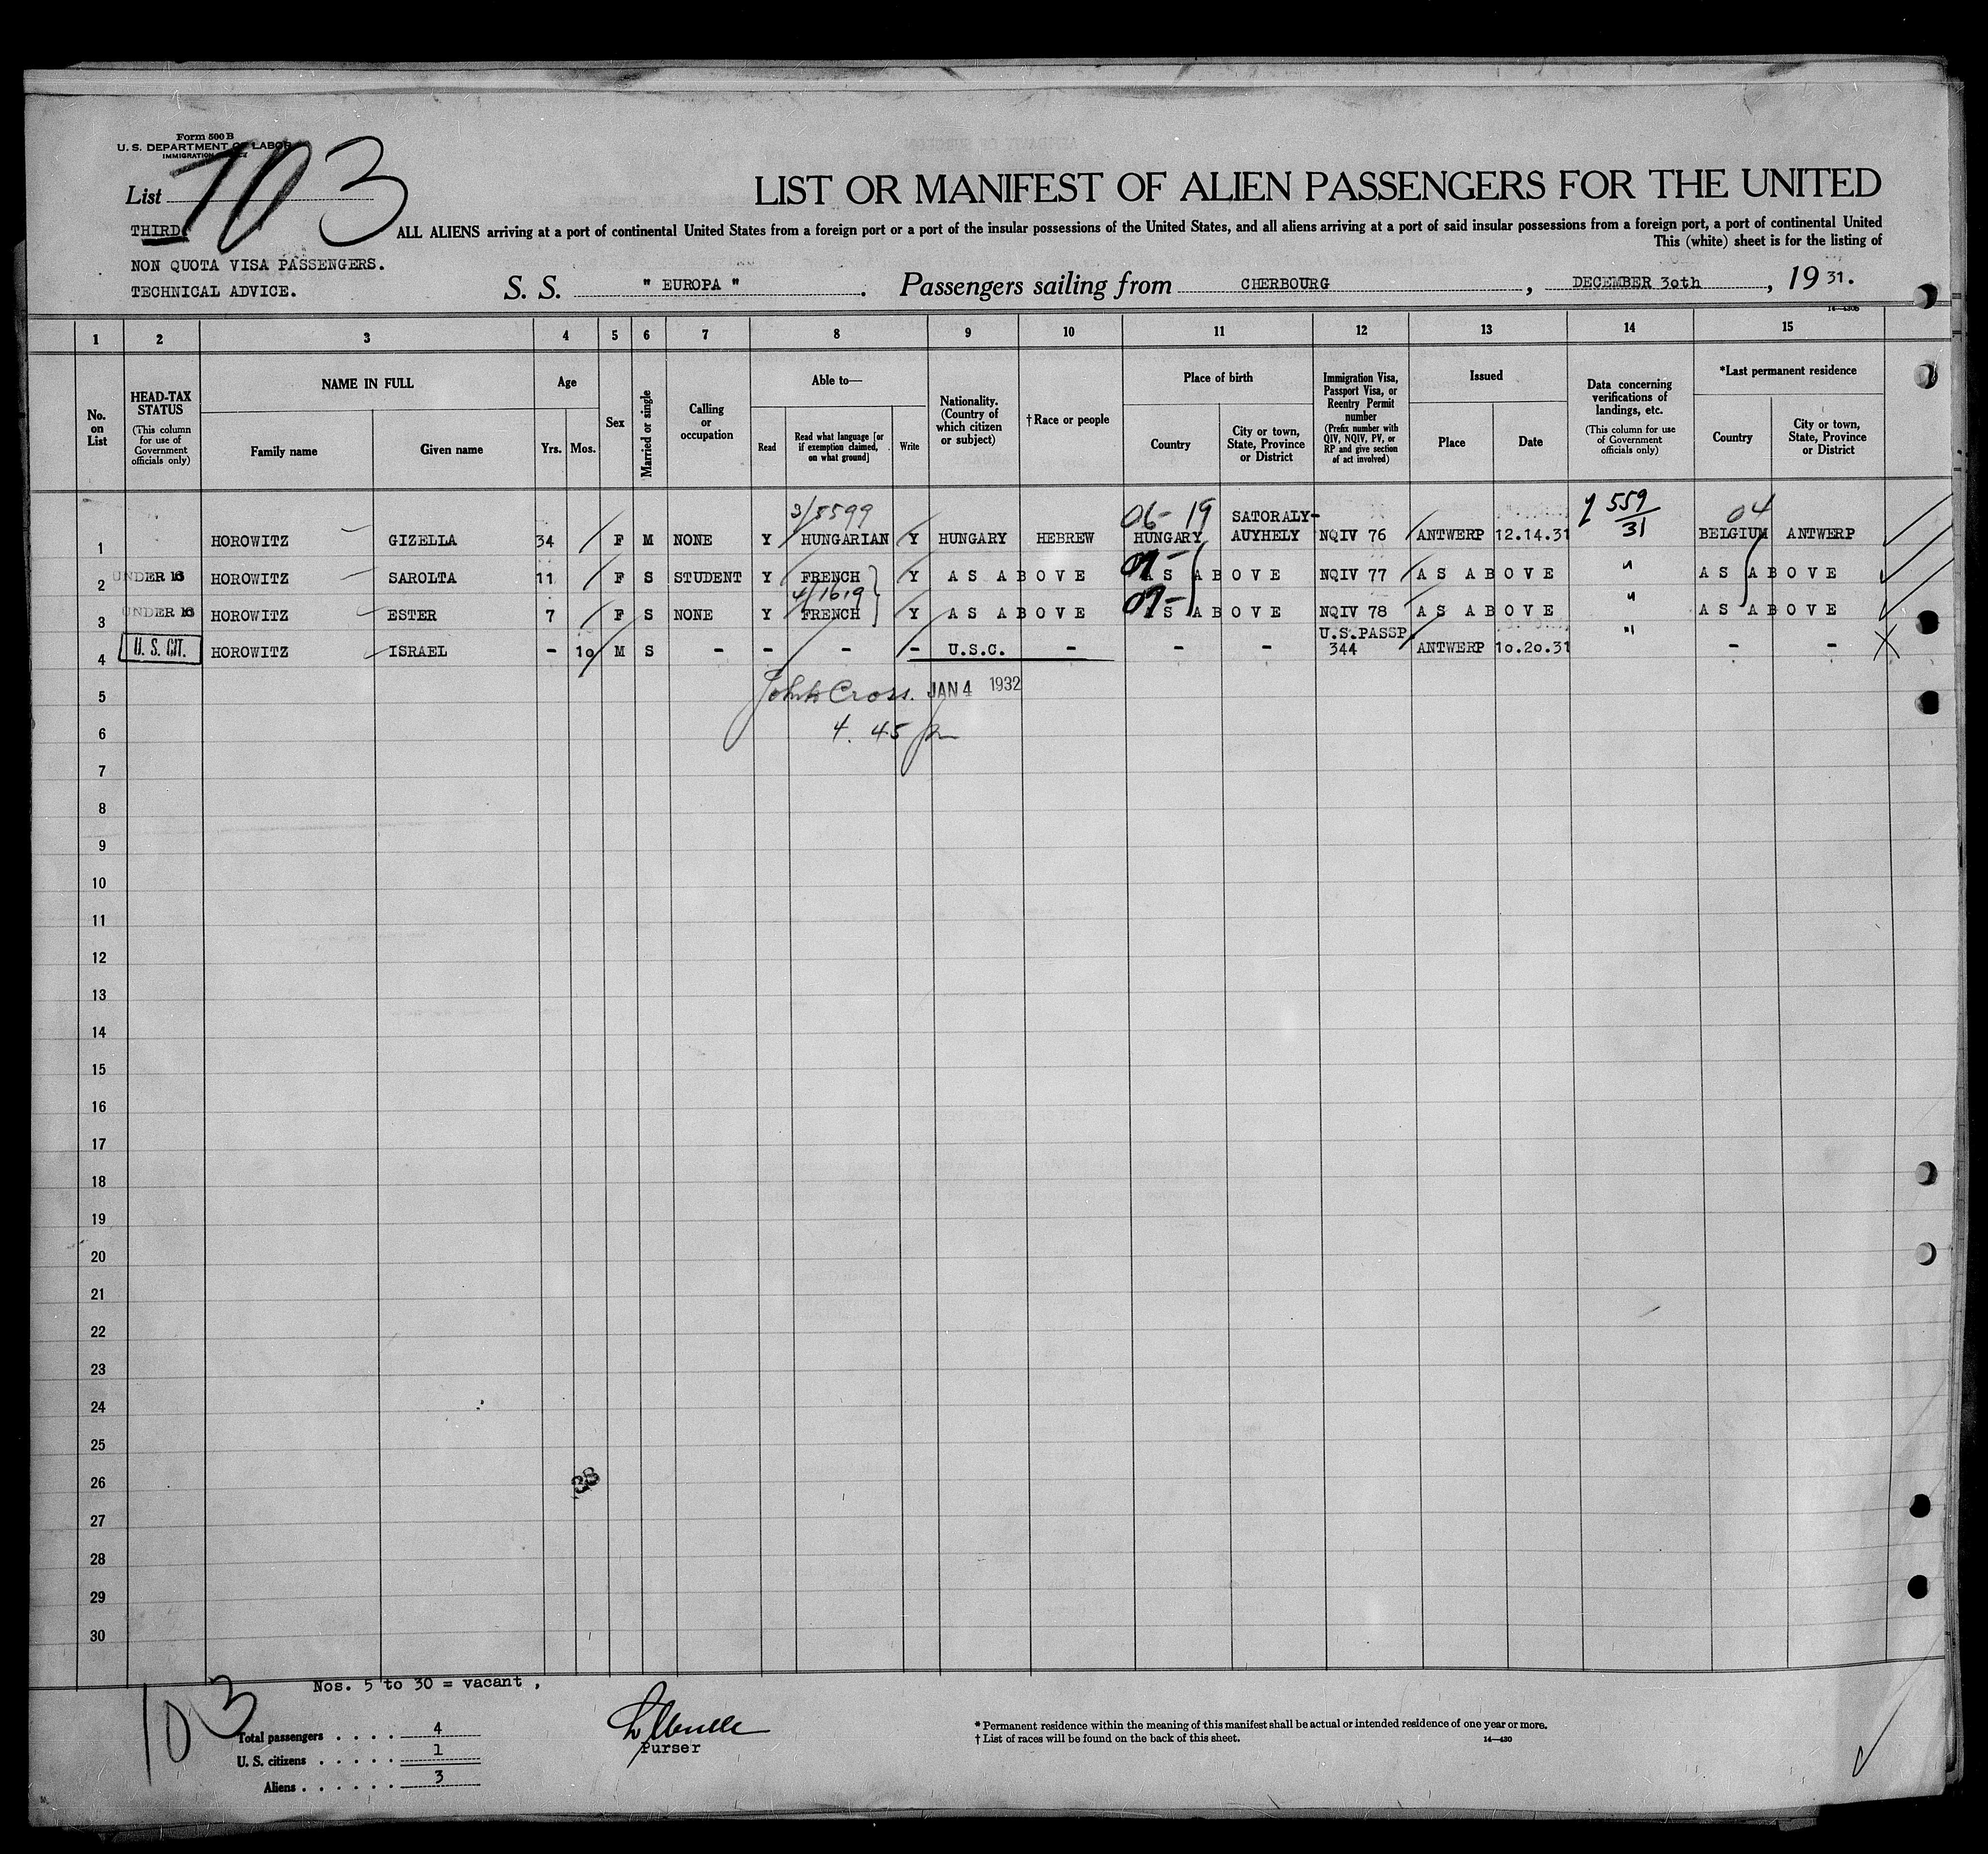 Form 500 B
U. S. DEPARTMENT OF LABOR
IMMIGRATION
List 103
LIST OR MANIFEST OF ALIEN PASSENGERS FOR THE UNITED
THIRD
ALL ALIENS arriving at a port of continental United States from a foreign port or a port of the insular possessions of the United States, and all aliens arriving at a port of said insular possessions from a foreign port, a port of continental United
This (white) sheet is for the listing of
NON QUOTA VISA PASSENGERS.
TECHNICAL ADVICE.
S. S. " EUROPA ". Passengers sailing from CHERBOURG, DECEMBER 30th, 19 31.
1 2 3 4 5 6 7 8 9 10 11 12 13 14 15
No. on List
HEAD-TAX STATUS (This column for use of Government officials only)
NAME IN FULL
Family name
Given name
Age
Yrs. Mos.
Sex
Married or single
Calling or occupation
Able to—
Read
Read what language [or if exemption claimed, on what ground]
Write
Nationality. (Country of which citizen or subject)
† Race or people
Place of birth
Country
City or town, State, Province or District
Immigration Visa, Passport Visa, or Reentry Permit number (Prefix number with QIV, NQIV, PV, or RP and give section of act involved)
Issued
Place
Date
Data concerning verifications of landings, etc. (This column for use of Government officials only)
*Last permanent residence
Country
City or town, State, Province or District
3/5599 06- 19 SATORALY- 559/31 04
1 HOROWITZ GIZELLA 34 F M NONE Y HUNGARIAN Y HUNGARY HEBREW HUNGARY AUYHELY NQIV 76 ANTWERP 12.14.31 BELGIUM ANTWERP
2 UNDER 16 HOROWITZ SAROLTA 11 F S STUDENT Y FRENCH Y AS ABOVE AS ABOVE NQIV 77 AS ABOVE " AS ABOVE
4/1619
3 UNDER 16 HOROWITZ ESTER 7 F S NONE Y FRENCH Y AS ABOVE AS ABOVE NQIV 78 AS ABOVE " AS ABOVE
U.S.PASSP.
4 U. S. CIT. HOROWITZ ISRAEL - 10 M S - - - - U.S.C. - - - 344 ANTWERP 10.20.31 " - -
5 John Cross. JAN 4 1932
6 4. 45 pm
7
8
9
10
11
12
13
14
15
16
17
18
19
20
21
22
23
24
25
26 38
27
28
29
30
Nos. 5 to 30 = vacant ,
103
Total passengers . . . . 4
U. S. citizens . . . . . 1
Aliens . . . . . . 3
Purser
* Permanent residence within the meaning of this manifest shall be actual or intended residence of one year or more.
† List of races will be found on the back of this sheet.
14—430